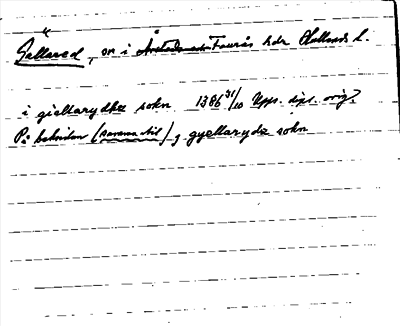 Gällared, sn i Årstads och Faurås hdr Hallands l.
i giællarydha sokn 1386 31/10 Upps. dipl. orig?
På baksidan (samma stil) j gyællaryda sokn